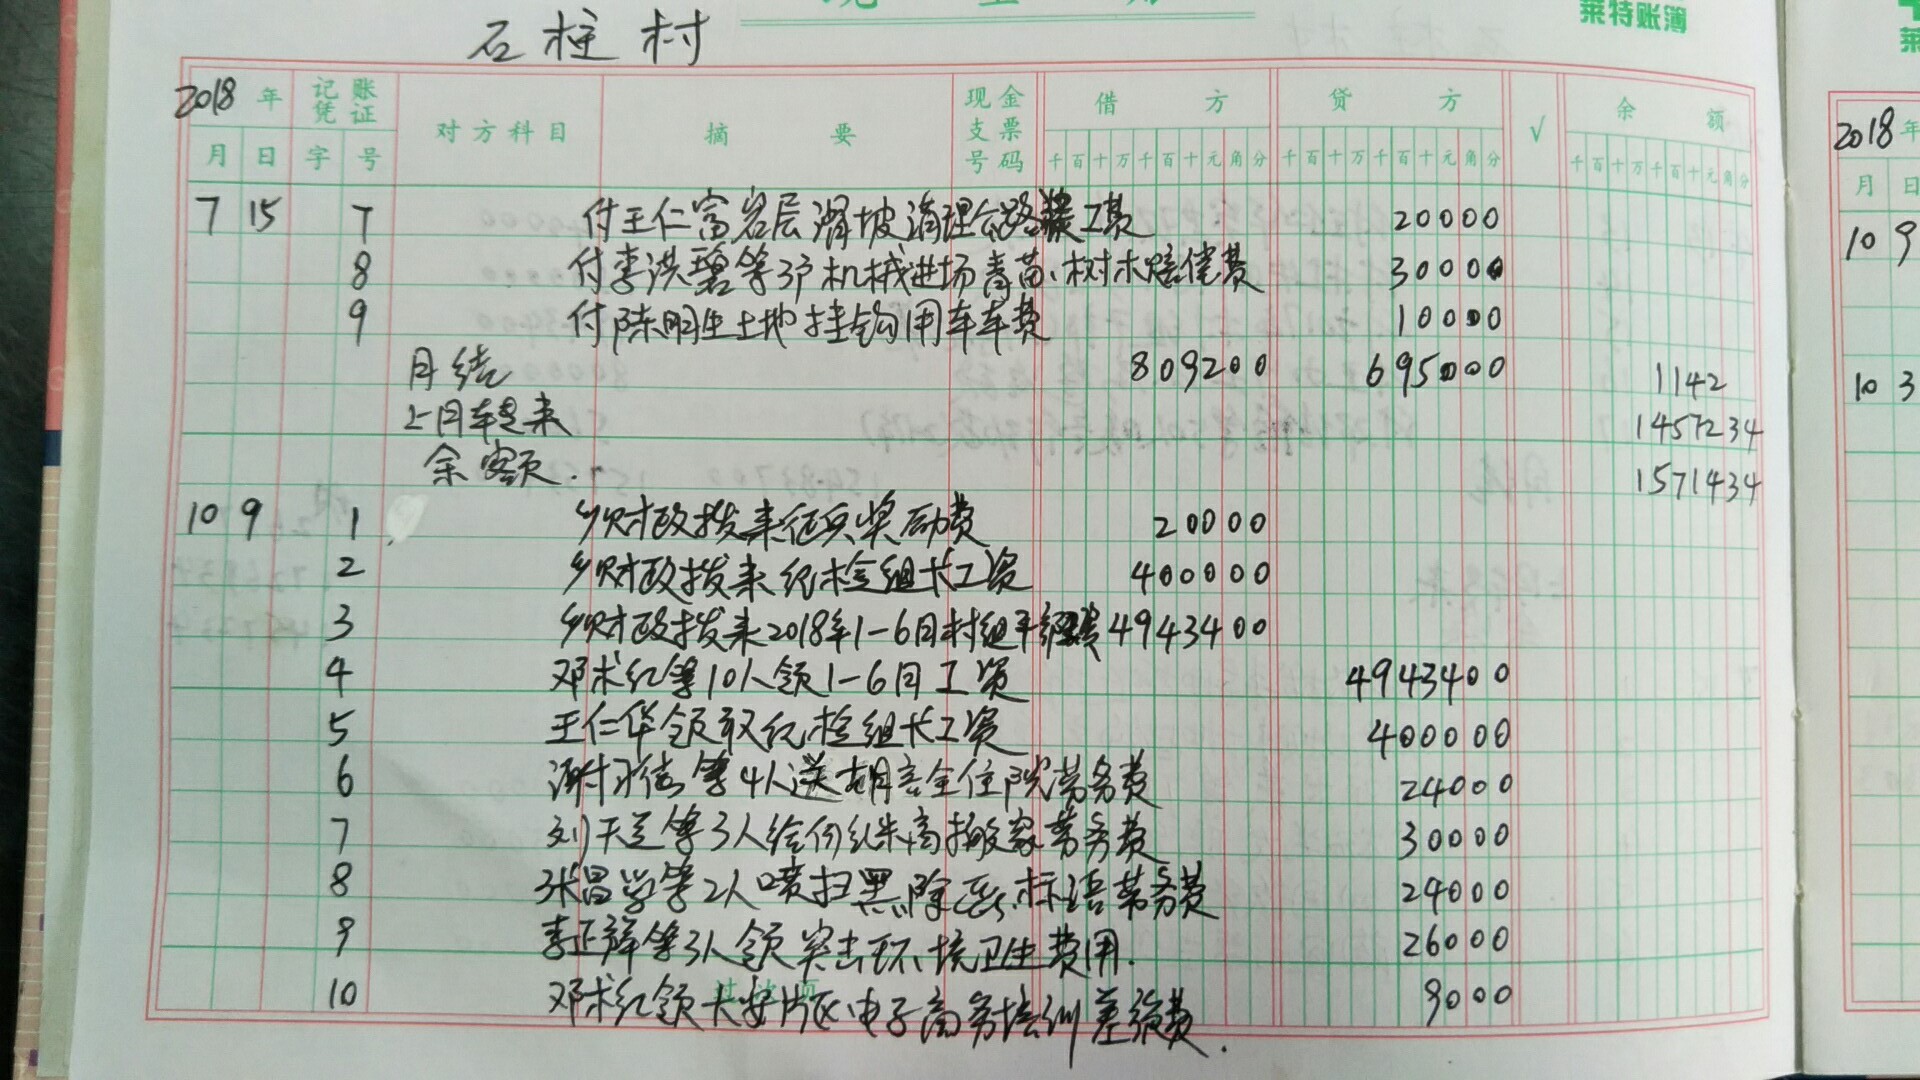 石柱村
莱特账簿
2018 年 记账凭证 对方科目 摘要 现金支票号码 借方 贷方 √ 余额
月 日 字 号 千百十万千百十元角分 千百十万千百十元角分 千百十万千百十元角分
7 15 7 付王仁富岩层滑坡清理公路 工费 20000
8 付李洪碧等3户机械进场青苗、树木赔偿费 30000
9 付陈明生土地挂钩用车车费 10000
月结 809200 695000 1142
上月结来 1457234
余额. 1571434
10 9 1 乡财政拨来征兵奖励费 20000
2 乡财政拨来纪检组长工资 400000
3 乡财政拨来2018年1-6月村组干 4943400
4 邓术红等10人领1-6月工资 4943400
5 王仁华领取纪检组长工资 400000
6 谢 等4人送胡 全住院劳务费 24000
7 刘天 等3人给何 搬家劳务费 30000
8 张昌学等2人喷扫黑除恶标语劳务费 24000
9 李正辉等3人领突击环境卫生费用. 26000
10 邓术红领大安片区电子商务培训差旅费. 9000
2018 年
月 日
10 9
10 3